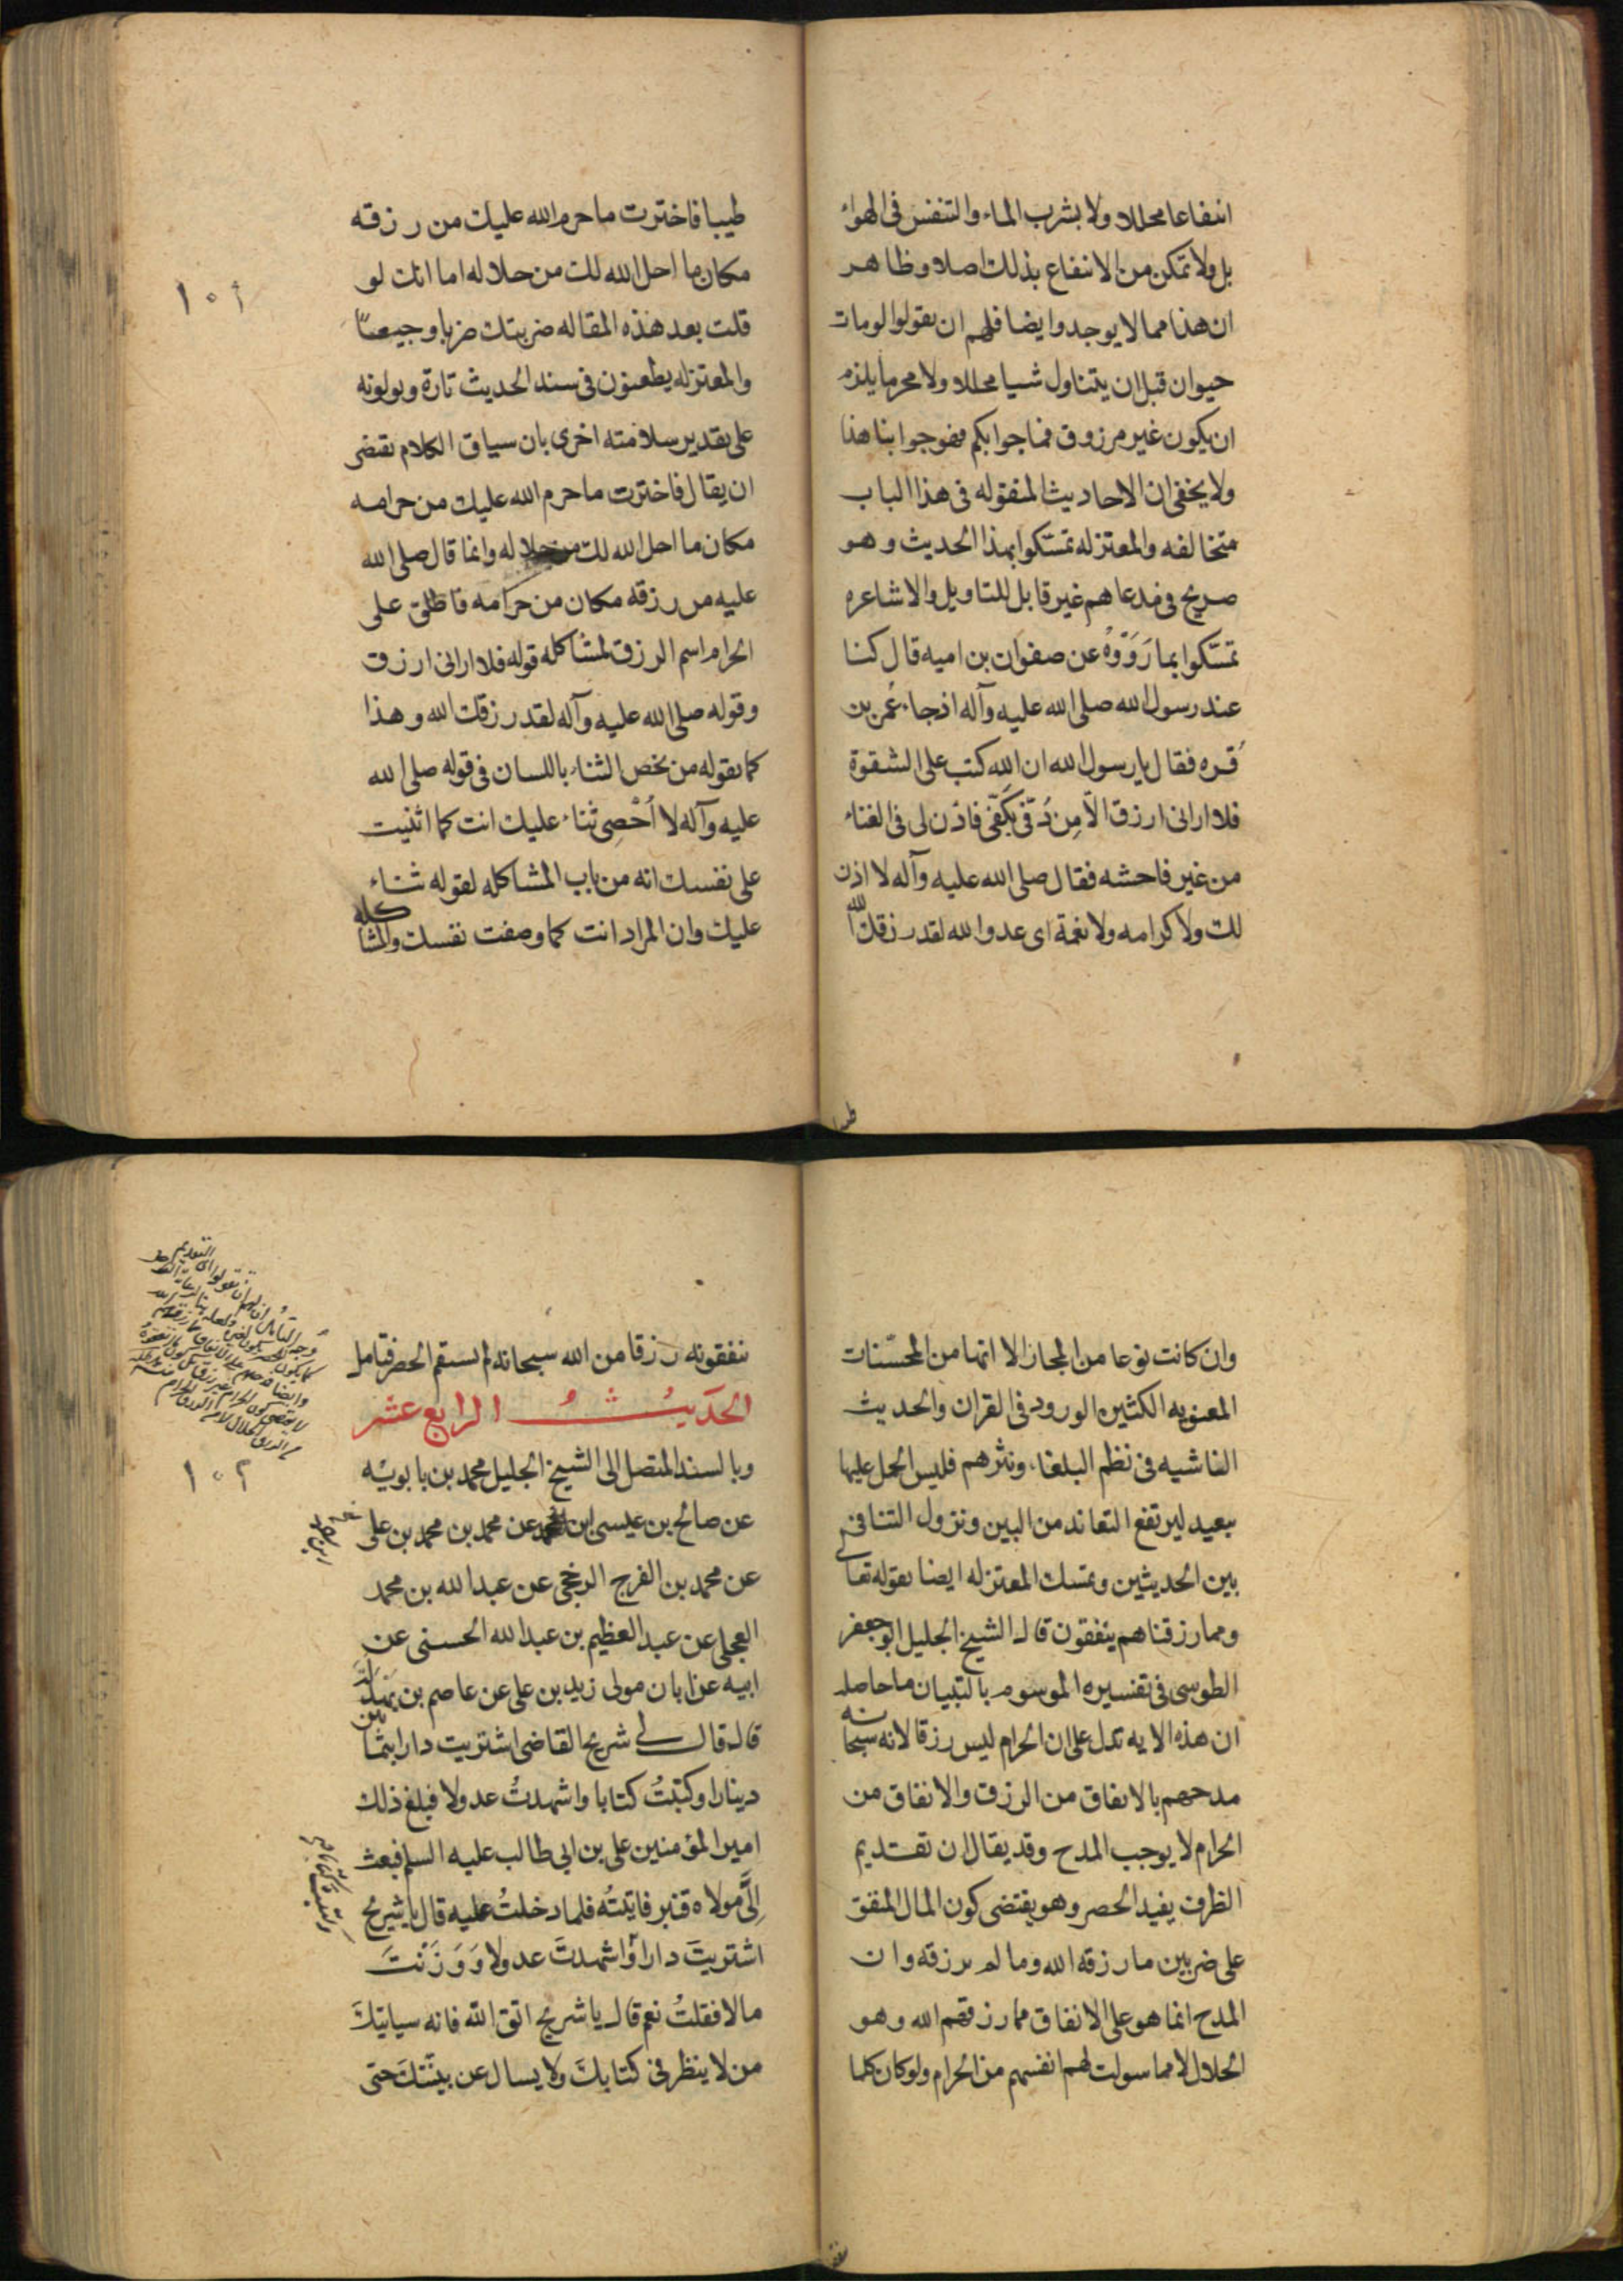 انتفاعا محللا ولا بشرب الماء والتنفس فى الهواء
بل ولا تمكن من الانتفاع بذلك اصلا وظاهر
ان هذا مما لا يوجد وايضا فلهم ان يقولوا لو مات
حيوان قبل ان يتناول شيا محللا ولا محرما يلزم
ان يكون غير مرزوق فما جوابكم فهو جوابنا هذا
ولا يخفى ان الاحاديث المنقوله فى هذا الباب
متخالفه والمعتزله تمسكوا بهذا الحديث وهو
صريح فى مدعاهم غير قابل للتاويل والاشاعره
تمسّكوا بما رَوَوْهُ عن صفوان بن اميه قال كنا
عند رسول الله صلى الله عليه وآله اذ جاء عمر بن
قُره فقال يا رسول الله ان الله كتب على الشقوة
فلا ارانى ارزق الّا مِن دُفّى بكَفّى فاذن لى فى الغناء
من غير فاحشه فقال صلى الله عليه وآله لا اذن
لك ولا كرامه ولا نعمة اى عدو الله لقد رزقك الله
طيبا
طيبا فاخترت ما حرم الله عليك من رزقه
مكان ما احل الله لك من حلاله اما انك لو
قلت بعد هذه المقاله ضربتك ضربا وجيعًا
١٠١
والمعتزله يطعنون فى سند الحديث تارة ويولونه
على تقدير سلامته اخرى بان سياق الكلام يقتضى
ان يقال فاخترت ما حرم الله عليك من حرامه
مكان ما احل الله لك من حلاله وانما قال صلى الله
عليه من رزقه مكان من حرامه فاطلق على
الحرام اسم الرزق لمشاكله قوله فلا ارانى ارزق
وقوله صلى الله عليه وآله لقد رزقك الله وهذا
كما يقوله من يخص الثناء باللسان فى قوله صلى الله
عليه وآله لا اُحْصِى ثناء عليك انت كما اثنيت
على نفسك انه من باب المشاكله لقوله ثناء
عليك وان المراد انت كما وصفت نفسك والمشاكله
وان كانت نوعا من المجاز الا انها من المحسّنات
المعنويه الكثيره الورود فى القران والحديث
الفاشيه فى نظم البلغاء ونثرهم فليس الحمل عليها
ببعيد ليرتفع التعاند من البين ويزول التنافى
بين الحديثين وتمسك المعتزله ايضا بقوله تعالى
ومما رزقناهم ينفقون قال الشيخ الجليل ابو جعفر
الطوسى فى تفسيره الموسوم بالتبيان ما حاصله
ان هذه الايه تدل على ان الحرام ليس رزقا لانه سبحانه
مدحهم بالانفاق من الرزق والانفاق من
الحرام لا يوجب المدح وقد يقال ان تقديم
الظرف يفيد الحصر وهو يقتضى كون المال المنفق
على ضربين ما رزقه الله وما لم يرزقه وان
المدح انما هو على الانفاق مما رزقهم الله وهو
الحلال لا مما سولت لهم انفسهم من الحرام ولو كان كلما
ينفقونه رزقا من الله سبحانه لم يستقم الحصر فتامل
الحديثُ الرابع عشر
وبالسند المتصل الى الشيخ الجليل محمد بن بابويه
١٠٢
عن صالح بن عيسى بن عن محمد بن محمد بن على
عن محمد بن الفرج الرخجى عن عبد الله بن محمد
العجلى عن عبد العظيم بن عبد الله الحسنى عن
ابيه عن ابان مولى زيد بن على عن عاصم بن بَهدَلَةَ
قال قال لى شريح القاضى اشتريت دارا بثمانين
دينارا وكتبتُ كتابا واشهدتُ عدولا فبلغ ذلك
امير المؤمنين على بن ابى طالب عليه السلم فبعث
اِلَىَّ مولاه قنبر فاتيتُه فلما دخلتُ عليه قال يا شريح
اشتريتَ دارا واشهدتَ عدولا وَوَزَنْتَ
مالا فقلتُ نعم قال يا شريح اتق الله فانه سياتيكَ
من لا ينظر فى كتابكَ ولا يسال عن بيّنتكَ حتى